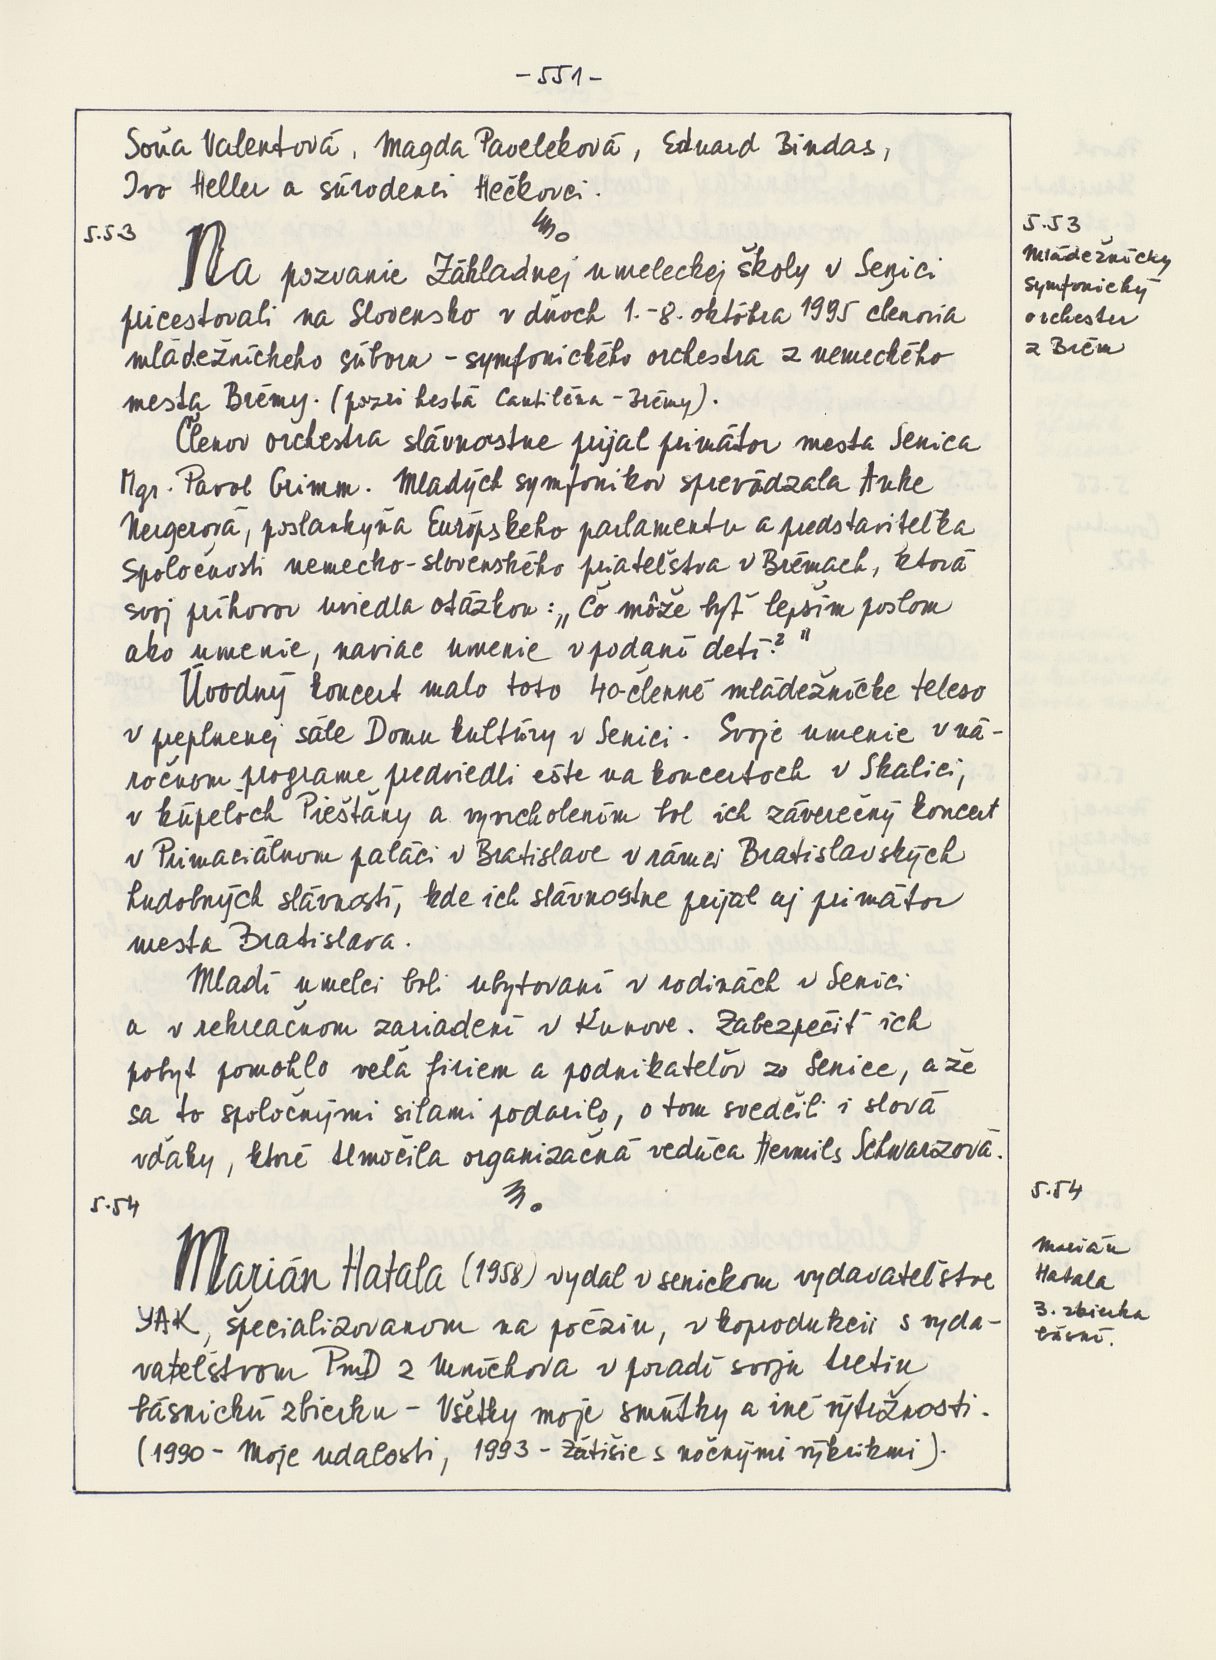 - 551 -
Soňa Valentová, Magda Paveleková, Eduard Bindas,
Ivo Heller a súrodenci Hečkovci.
5.53
Na pozvanie Základnej umeleckej školy v Senici
pricestovali na Slovensko v dňoch 1.-8. októbra 1995 členovia
mládežníckeho súboru - symfonického orchestra z nemeckého
mesta Brémy. (pozri heslá Cantiléna - Brémy).
Členov orchestra slávnostne prijal primátor mesta Senica
Mgr. Pavol Grimm. Mladých symfonikov sprevádzala Anke
Nergerová, poslankyňa Európskeho parlamentu a predstaviteľka
Spoločnosti nemecko-slovenského priateľstva v Brémach, ktorá
svoj príhovor uviedla otázkou: „Čo môže byť lepším poslom
ako umenie, naviac umenie v podaní detí?"
Úvodný koncert malo toto 40-členné mládežnícke teleso
v preplnenej sále Domu kultúry v Senici. Svoje umenie v ná-
ročnom programe predviedli ešte na koncertoch v Skalici,
v kúpeľoch Piešťany a vyvrcholením bol ich záverečný koncert
v Primaciálnom paláci v Bratislave v rámci Bratislavských
hudobných slávností, kde ich slávnostne prijal aj primátor
mesta Bratislava.
Mladí umelci boli ubytovaní v rodinách v Senici
a v rekreačnom zariadení v Kunove. Zabezpečiť ich
pobyt pomohlo veľa firiem a podnikateľov zo Senice, a že
sa to spoločnými silami podarilo, o tom svedčili i slová
vďaky, ktoré tlmočila organizačná vedúca Hermils Schwarzová.
5.54
Marián Hatala (1958) vydal v senickom vydavateľstve
YAK, špecializovanom na poéziu, v koprodukcii s vyda-
vateľstvom PmD z Mníchova v poradí svoju tretiu
básnickú zbierku - Všetky moje smútky a iné výtržnosti.
(1990 - Moje udalosti, 1993 - Zátišie s nočnými výkrikmi).
5.53
Mládežnícky
symfonický
orchester
z Brém
5.54
Marián
Hatala
3. zbierka
básní.